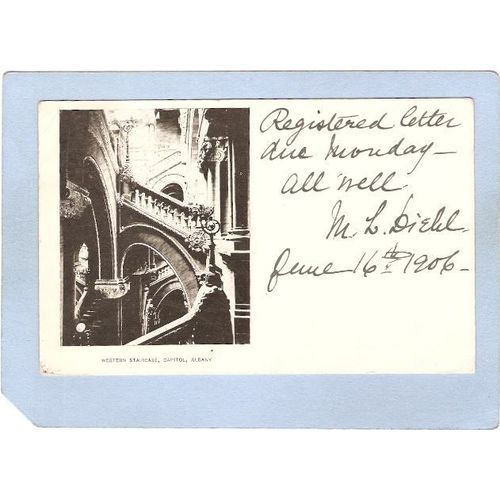 Registered letter
due Monday—
all well.
M. L. Diehl.
June 16th 1906—
WESTERN STAIRCASE, CAPITOL, ALBANY